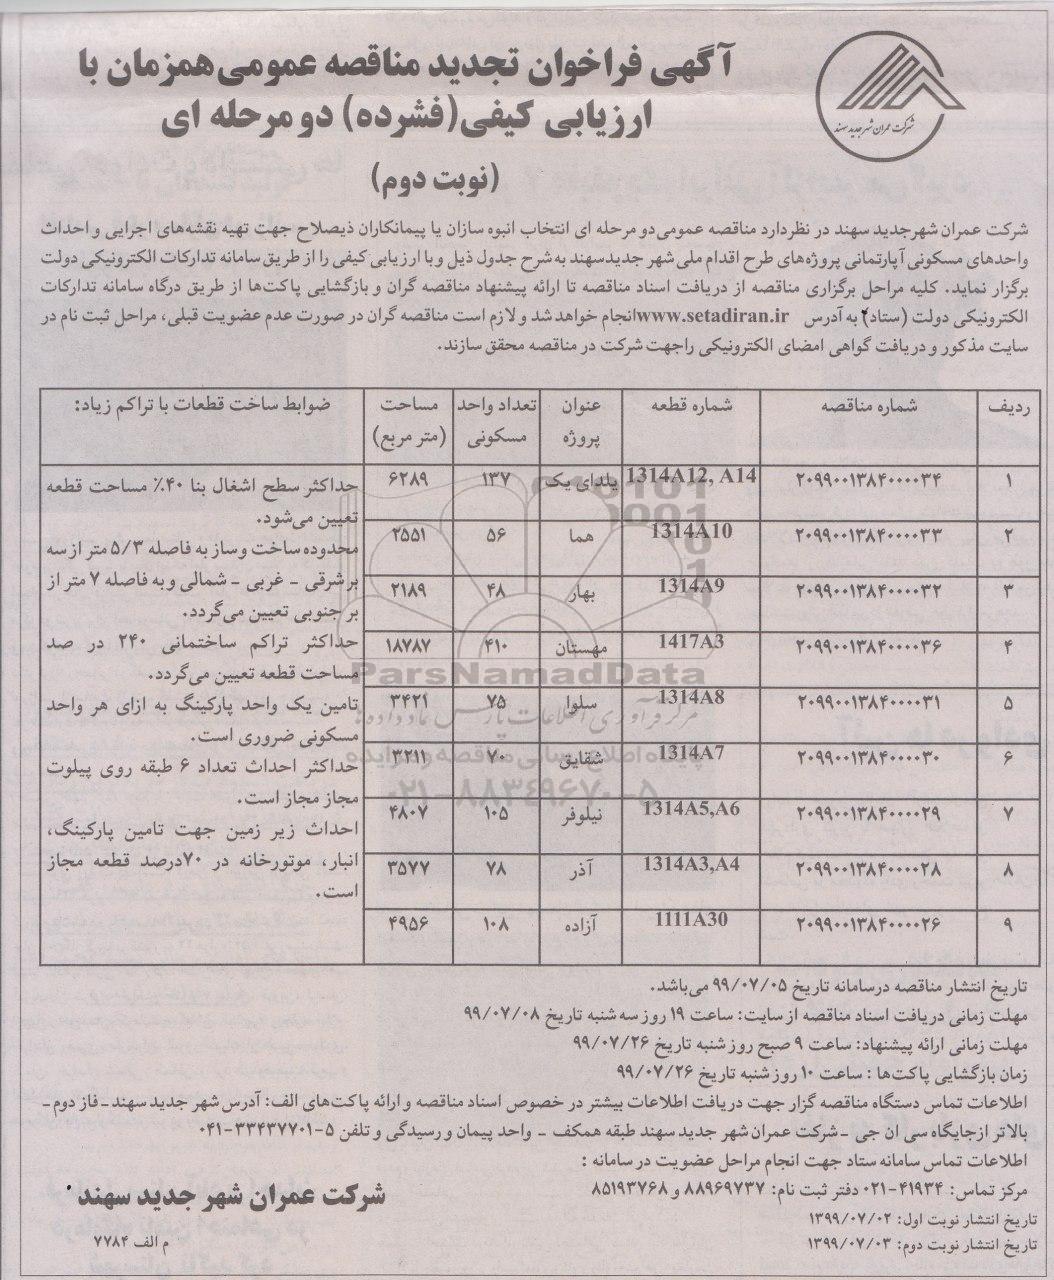 آگهی فراخوان تجدید مناقصه عمومی همزمان با
ارزیابی کیفی(فشرده) دو مرحله ای
(نوبت دوم)
شرکت عمران شهر جدید سهند
شرکت عمران شهرجدید سهند در نظردارد مناقصه عمومی‌دو مرحله ای انتخاب انبوه سازان یا پیمانکاران ذیصلاح جهت تهیه نقشه‌های اجرایی و احداث
واحدهای مسکونی آپارتمانی پروژه‌های طرح اقدام ملی شهر جدیدسهند به شرح جدول ذیل و با ارزیابی کیفی را از طریق سامانه تدارکات الکترونیکی دولت
برگزار نماید. کلیه مراحل برگزاری مناقصه از دریافت اسناد مناقصه تا ارائه پیشنهاد مناقصه گران و بازگشایی پاکت‌ها از طریق درگاه سامانه تدارکات
الکترونیکی دولت (ستاد) به آدرس www.setadiran.irانجام خواهد شد و لازم است مناقصه گران در صورت عدم عضویت قبلی، مراحل ثبت نام در
سایت مذکور و دریافت گواهی امضای الکترونیکی راجهت شرکت در مناقصه محقق سازند.
ردیف شماره مناقصه شماره قطعه عنوان پروژه تعداد واحد مسکونی مساحت (متر مربع) ضوابط ساخت قطعات با تراکم زیاد:
۱ ۲۰۹۹۰۰۱۳۸۴۰۰۰۰۳۴ 1314A12, A14 یلدای یک ۱۳۷ ۶۲۸۹
۲ ۲۰۹۹۰۰۱۳۸۴۰۰۰۰۳۳ 1314A10 هما ۵۶ ۲۵۵۱
۳ ۲۰۹۹۰۰۱۳۸۴۰۰۰۰۳۲ 1314A9 بهار ۴۸ ۲۱۸۹
۴ ۲۰۹۹۰۰۱۳۸۴۰۰۰۰۳۶ 1417A3 مهستان ۴۱۰ ۱۸۷۸۷
۵ ۲۰۹۹۰۰۱۳۸۴۰۰۰۰۳۱ 1314A8 سلوا ۷۵ ۳۴۲۱
۶ ۲۰۹۹۰۰۱۳۸۴۰۰۰۰۳۰ 1314A7 شقایق ۷۰ ۳۲۱۱
۷ ۲۰۹۹۰۰۱۳۸۴۰۰۰۰۲۹ 1314A5,A6 نیلوفر ۱۰۵ ۴۸۰۷
۸ ۲۰۹۹۰۰۱۳۸۴۰۰۰۰۲۸ 1314A3,A4 آذر ۷۸ ۳۵۷۷
۹ ۲۰۹۹۰۰۱۳۸۴۰۰۰۰۲۶ 1111A30 آزاده ۱۰۸ ۴۹۵۶
حداکثر سطح اشغال بنا ۴۰٪ مساحت قطعه
تعیین می‌شود.
محدوده ساخت و ساز به فاصله ۵/۳ متر از سه
بر شرقی - غربی - شمالی و به فاصله ۷ متر از
بر جنوبی تعیین می‌گردد.
حداکثر تراکم ساختمانی ۲۴۰ در صد
مساحت قطعه تعیین می‌گردد.
تامین یک واحد پارکینگ به ازای هر واحد
مسکونی ضروری است.
حداکثر احداث تعداد ۶ طبقه روی پیلوت
مجاز مجاز است.
احداث زیر زمین جهت تامین پارکینگ،
انبار، موتورخانه در ۷۰درصد قطعه مجاز
است.
ParsNamadData
مرکز فرآوری اطلاعات پارس نماد داده ها
پایگاه اطلاع رسانی مناقصه و مزایده
۰۲۱-۸۸۳۴۹۶۷۰-۵
تاریخ انتشار مناقصه درسامانه تاریخ ۹۹/۰۷/۰۵ می‌باشد.
مهلت زمانی دریافت اسناد مناقصه از سایت: ساعت ۱۹ روز سه شنبه تاریخ ۹۹/۰۷/۰۸
مهلت زمانی ارائه پیشنهاد: ساعت ۹ صبح روز شنبه تاریخ ۹۹/۰۷/۲۶
زمان بازگشایی پاکت‌ها : ساعت ۱۰ روز شنبه تاریخ ۹۹/۰۷/۲۶
اطلاعات تماس دستگاه مناقصه گزار جهت دریافت اطلاعات بیشتر در خصوص اسناد مناقصه و ارائه پاکت‌های الف: آدرس شهر جدید سهند - فاز دوم -
بالاتر ازجایگاه سی ان جی - شرکت عمران شهر جدید سهند طبقه همکف - واحد پیمان و رسیدگی و تلفن ۵-۳۳۴۳۷۷۰۱-۰۴۱
اطلاعات تماس سامانه ستاد جهت انجام مراحل عضویت در سامانه :
مرکز تماس: ۴۱۹۳۴-۰۲۱ دفتر ثبت نام: ۸۸۹۶۹۷۳۷ و ۸۵۱۹۳۷۶۸
شرکت عمران شهر جدید سهند
تاریخ انتشار نوبت اول: ۱۳۹۹/۰۷/۰۲
تاریخ انتشار نوبت دوم: ۱۳۹۹/۰۷/۰۳
م الف ۷۷۸۴